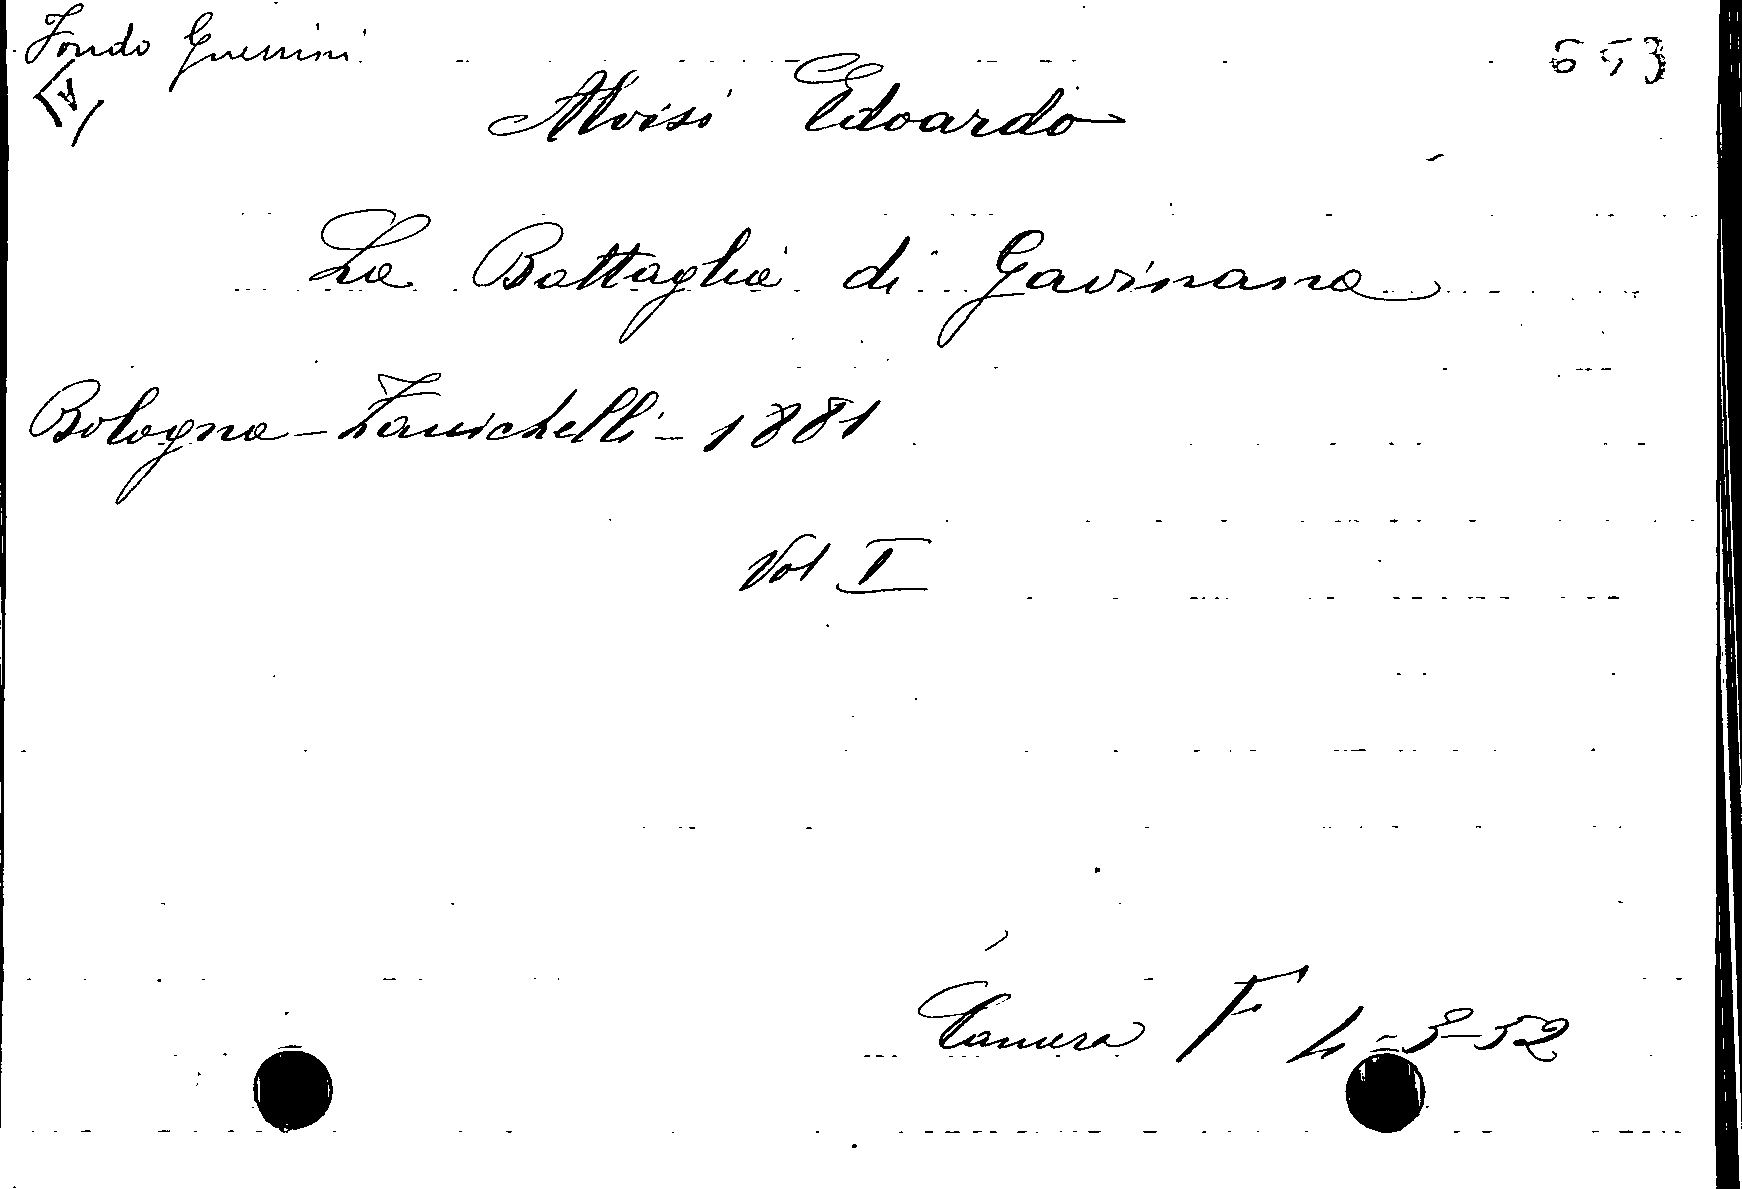 Fondo Guerrini
653
Alvisi Edoardo
La Battaglia di Gavinana
Bologna - Zanichelli - 1881
Vol I
Camera F 4-3-52